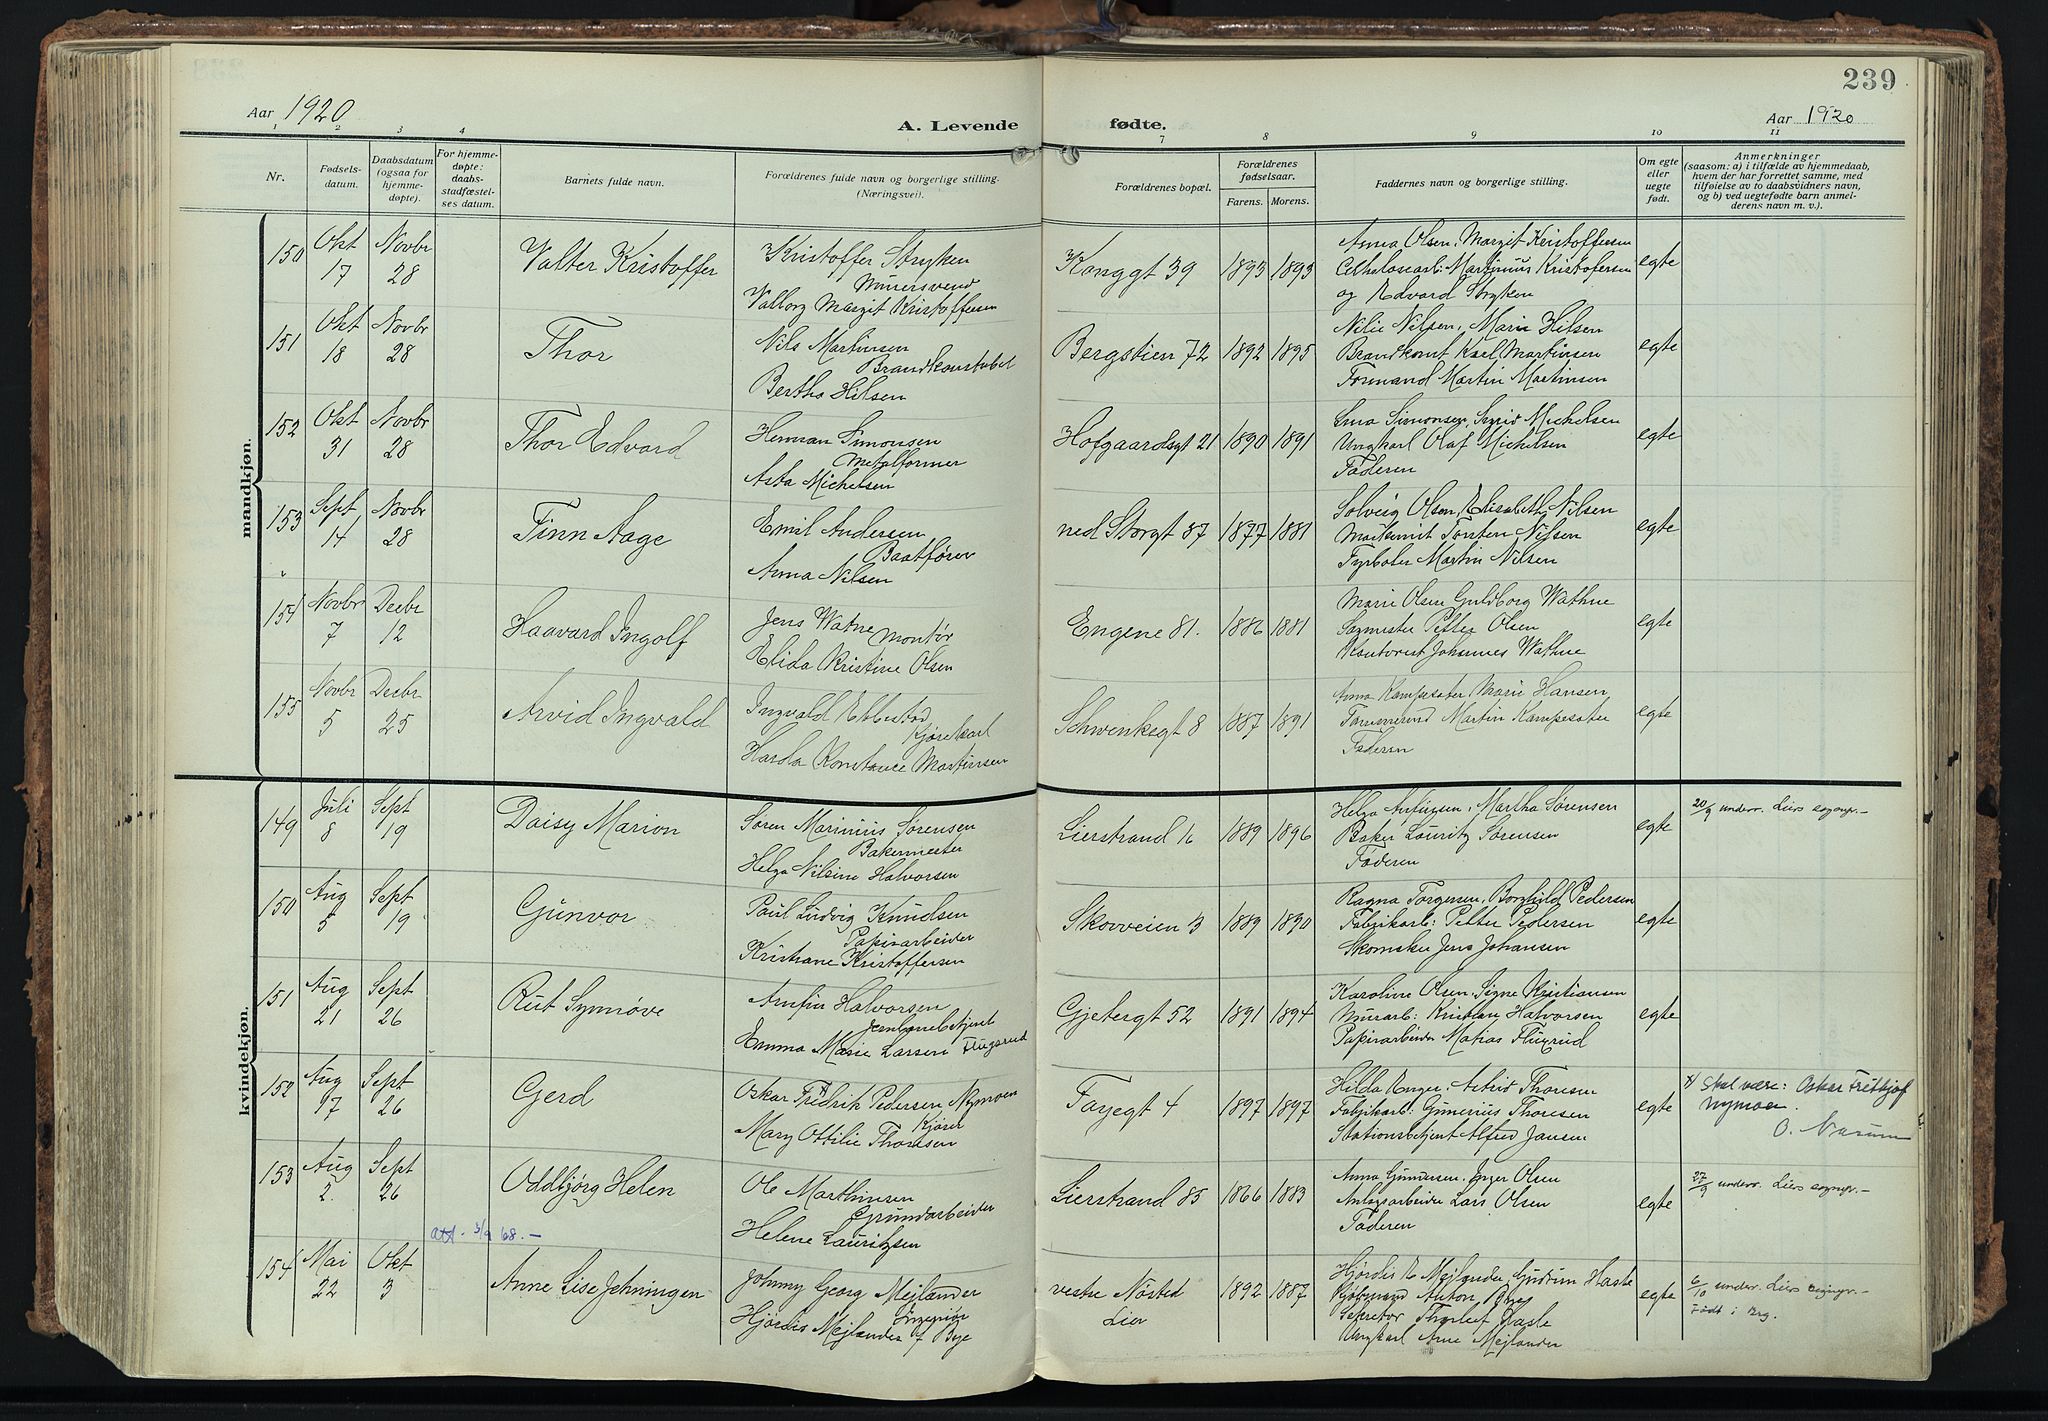 239
Aar 1920
A. Levende fødte.
Aar 1920
1 2 3 4 7 8 9 10 11
Nr.
Fødsels-datum.
Daabsdatum (ogsaa for hjemme-døpte).
For hjemme-døpte: daabs-stadfæstel-ses datum.
Barnets fulde navn.
Forældrenes fulde navn og borgerlige stilling. (Næringsvei).
Forældrenes bopæl.
Forældrenes fødselsaar.
Farens. Morens.
Faddernes navn og borgerlige stilling.
Om egte eller uegte født.
Anmerkninger (saasom: a) i tilfælde av hjemmedaab, hvem der har forrettet samme, med tilføielse av to daabsvidners navn, og b) ved uegtefødte barn anmel-derens navn m. v.).
mandkjøn.
150 Okt 17 Novbr 28 Valter Kristoffer
Kristoffer Stryken
Murersvend
Valborg Margit Kristoffersen
Konggt 39 1893 1893
Anna Olsen, Margit Kristoffersen
Martinius Kristofersen
og Edvard Stryken
egte
151 Okt 18 Novbr 28 Thor
Nils Martinsen
Brandkonstabel
Bertha Hilsen
Bergstien 72 1892 1895
Nilie Nilsen, Marie Hilsen
Brandkonst Karl Martinsen
Formand Martin Martinsen
egte
152 Okt 31 Novbr 28 Thor Edvard
Herman Simonsen
Metalformer
Asta Michelsen
Hofgaardsgt 21 1890 1891
Simonsen, Michelsen
Ungkarl Olaf Michelsen
Faderen
egte
153 Sept 14 Novbr 28 Finn Aage
Emil Andersen
Baatfører
Anna Nilsen
ned Storgt 87 1877 1881
Solveig Olsen, Elisabeth Nilsen
Torsten Nilsen
Fyrbøter Martin Nilsen
egte
154 Novbr 7 Decbr 12 Haavard Ingolf
Jens Watne Montør
Elida Kristine Olsen
Engene 81. 1886 1881
Marie Olsen Guldborg Wathne
Sagmester Petter Olsen
Kontorist Johannes Wathne
egte
155 Novbr 5 Decbr 25 Arvid Ingvald
Ingvald Ebbestad
Kjørekarl
Harda Konstance Martinsen
Schwenksgt 8 1887 1891
Anna Kampesæter Marie Hansen
Martin Kampesæter
Faderen
egte
kvindekjøn.
149 Juli 8 Sept 19 Daisy Marion
Søren Marinius Sørensen
Bakermester
Helga Nilsine Halvorsen
Lierstrand 16 1889 1896
Helga Martha Sørensen
Baker Lauritz Sørensen
Faderen
egte
20/9 underr. Liers sognpr. -
150 Aug 5 Sept 19 Gunvor
Paul Ludvig Knudsen
Papirarbeider
Kristiane Kristoffersen
Skovveien 3 1889 1890
Ragna Torgersen, Borghild Pedersen
Fabrikarb: Petter Pedersen
Skomaker Jens Johansen
egte
151 Aug 21 Sept 26 Rut Synnøve
Arnfin Halvorsen
Jernbanebetjent
Emma Marie Larsen Flugsrud
Gjetergt 52 1891 1894
Karoline Olsen, Signe Kristiansen
Murarb: Kristian Halvorsen
Papirarbeider Matias Flugsrud
egte
152 Aug 17 Sept 26 Gerd
Oskar Fredrik Pedersen Nymoen
Kjører
Mary Ottilie Thoresen
Fayegt 4 1897 1897
Hilda Enger, Astrid Thoresen
Fabrikarb: Gunerius Thoresen
Stationsbetjent Alfred Jansen
egte
x) Skal være: Oskar Fritkjof
Nymoen.
O. Næsum
153 Aug 2. Sept 26 Oddbjørg Helen
Ole Marthinsen
Grundarbeider
Helene Lauritzen
Lierstrand 85 1866 1883
Anna Gundersen, Inger Olsen
Anlegsarbeider Lars Olsen
Faderen
egte
27/9 underr. Liers sognpr. -
att. 3/9 68. -
154 Mai 22 Okt 3 Anne Lise Jehningen
Johnny Georg Mejlænder
Ingeniør
Hjørdis Mejlænder f Bye
vestre Nøsted
Lier
1892 1887
Hjørdis B Mejlænder, Gudrun Hasle
Kjøbmand Anton Bye
Sekretær Thorleif Hasle
Ungkarl Arne Mejlænder
egte
6/10 underr. Liers sognpr. -
Født i Brg.